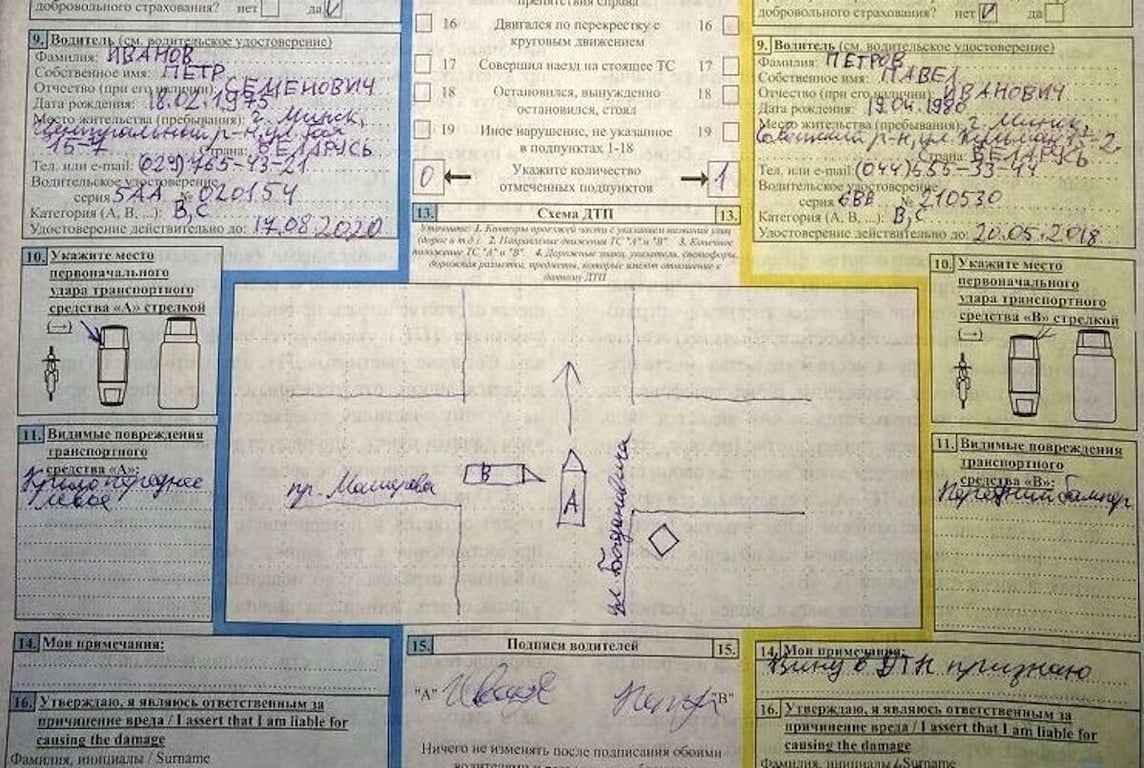 добровольного страхования? нет да V
9. Водитель (см. водительское удостоверение)
Фамилия: ИВАНОВ
Собственное имя: ПЕТР
Отчество (при его наличии): СЕМЕНОВИЧ
Дата рождения: 18.02.1975
Место жительства (пребывания): г. Минск,
Центральный р-н, ул.
15-7 Страна: БЕЛАРУСЬ
Тел. или e-mail: (029) 765-43-21
Водительское удостоверение
серия 5АА № 020154
Категория (А, В, ...): В, С
Удостоверение действительно до: 17.08.2020
10. Укажите место
первоначального
удара транспортного
средства «А» стрелкой
(→)
11. Видимые повреждения
транспортного
средства «А»:
Крыло переднее
левое
14. Мои примечания:
16. Утверждаю, я являюсь ответственным за
причинение вреда / I assert that I am liable for
causing the damage
Фамилия, инициалы / Surname
препятствия справа
16 Двигался по перекрестку с 16
круговым движением
17 Совершил наезд на стоящее ТС 17
18 Остановился, вынужденно 18
остановился, стоял
19 Иное нарушение, не указанное 19
в подпунктах 1-18
0 ← Укажите количество → 1
отмеченных подпунктов
13. Схема ДТП 13.
Уточнение: 1. Контуры проезжей части с указанием названия улиц
(дорог и т.д.) 2. Направление движения ТС "А" и "В". 3. Конечное
положение ТС "А" и "В". 4. Дорожные знаки, указатели, светофоры,
дорожная разметка, предметы, которые имеют отношение к
данному ДТП
пр. Машерова
В
А
ул. Богдановича
15. Подписи водителей 15.
"А" "В"
Ничего не изменять после подписания обоими
добровольного страхования? нет V да
9. Водитель (см. водительское удостоверение)
Фамилия: ПЕТРОВ
Собственное имя: ПАВЕЛ
Отчество (при его наличии): ИВАНОВИЧ
Дата рождения: 19.04.1980
Место жительства (пребывания): г. Минск,
Советский р-н, ул.
Страна: БЕЛАРУСЬ
Тел. или e-mail: (044) 655-33-44
Водительское удостоверение
серия 6ВВ № 210530
Категория (А, В, ...): В, С
Удостоверение действительно до: 20.05.2018
10. Укажите место
первоначального
удара транспортного
средства «В» стрелкой
(→)
11. Видимые повреждения
транспортного
средства «В»:
Передний бампер
14. Мои примечания:
Вину в ДТП признаю
16. Утверждаю, я являюсь ответственным за
причинение вреда / I assert that I am liable for
causing the damage
Фамилия, инициалы / Surname